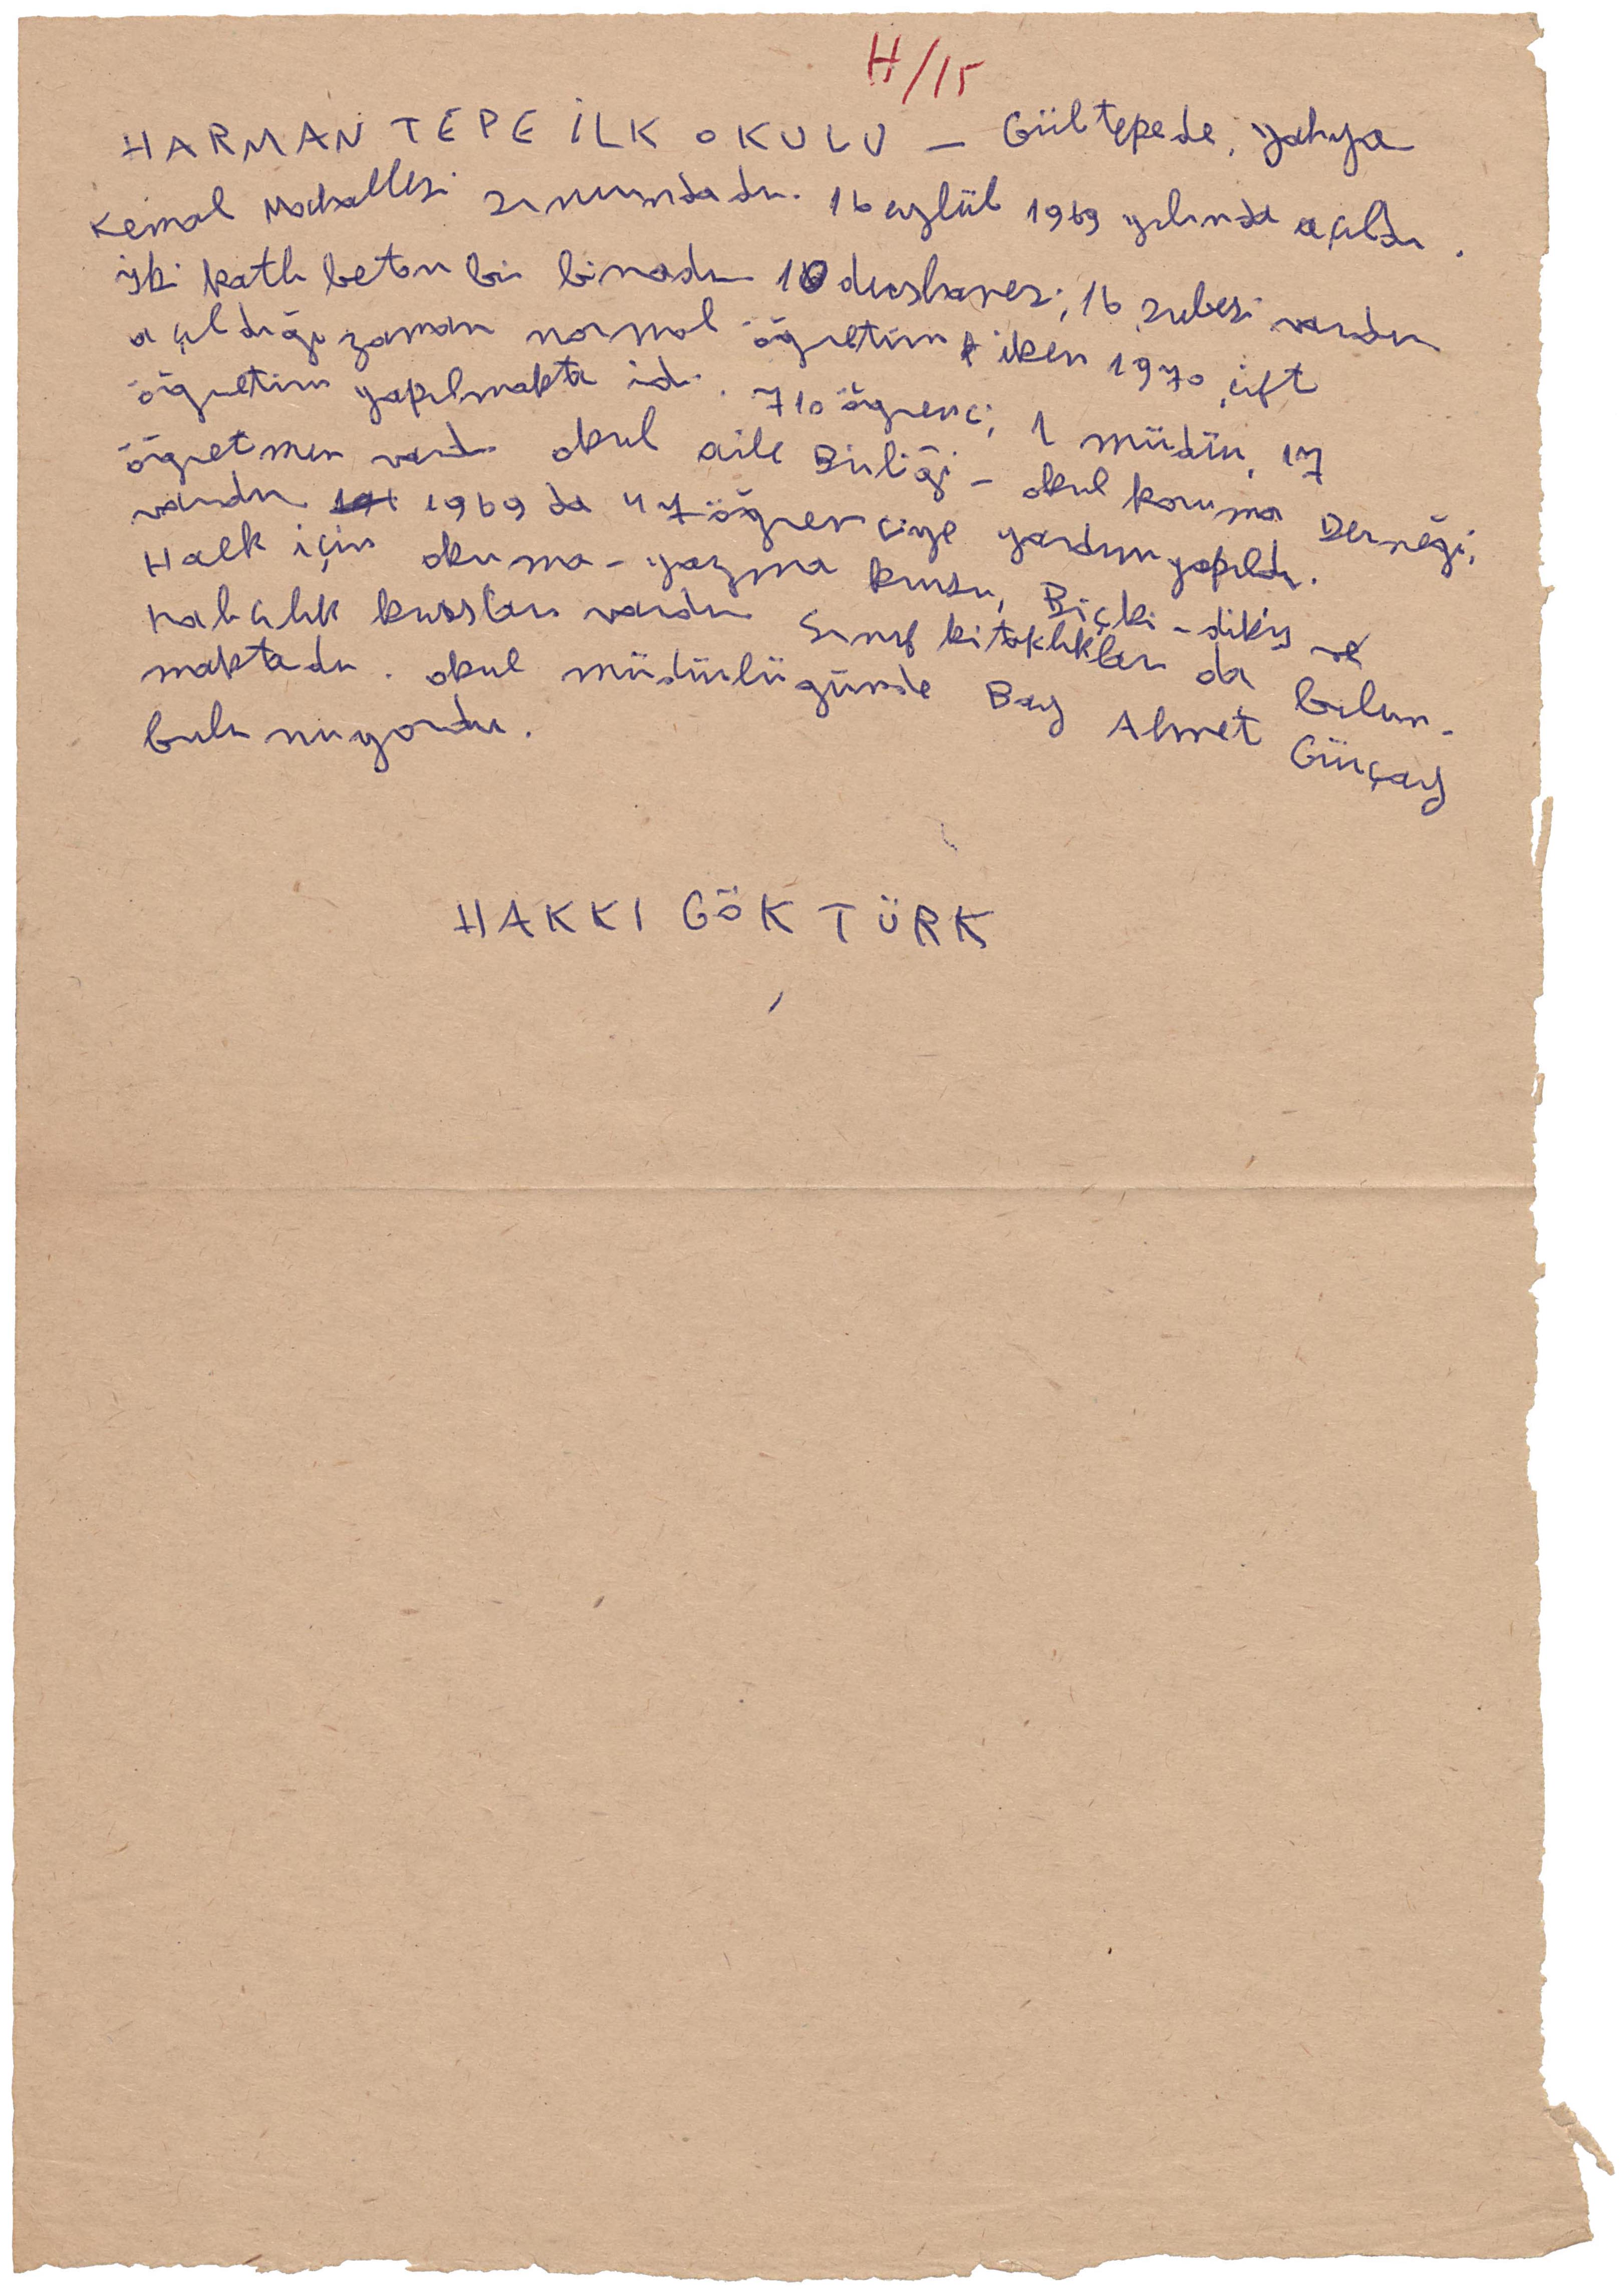 H/15
HARMAN TEPE İLK OKULU — Gültepede, Yahya
Kemal Mahallesi sınırındadır. 16 eylül 1969 yılında açıldı.
İki katlı beton bir binadır 10 dershanesi, 16 şubesi vardır
açıldığı zaman normal öğretim iken 1970 çift
öğretim yapılmakta idi. 710 öğrenci, 1 müdür, 17
öğretmen vardı okul aile Birliği - okul koruma Derneği,
vardır 1969 da 47 öğrenciye yardım yapıldı.
Halk için okuma - yazma kursu, Biçki - dikiş ve
halıcılık kursları vardır Sınıf kitaplıkları da bulun-
maktadır. okul müdürlüğünde Bay Ahmet Gürçay
bulunuyordu.
HAKKI GÖKTÜRK